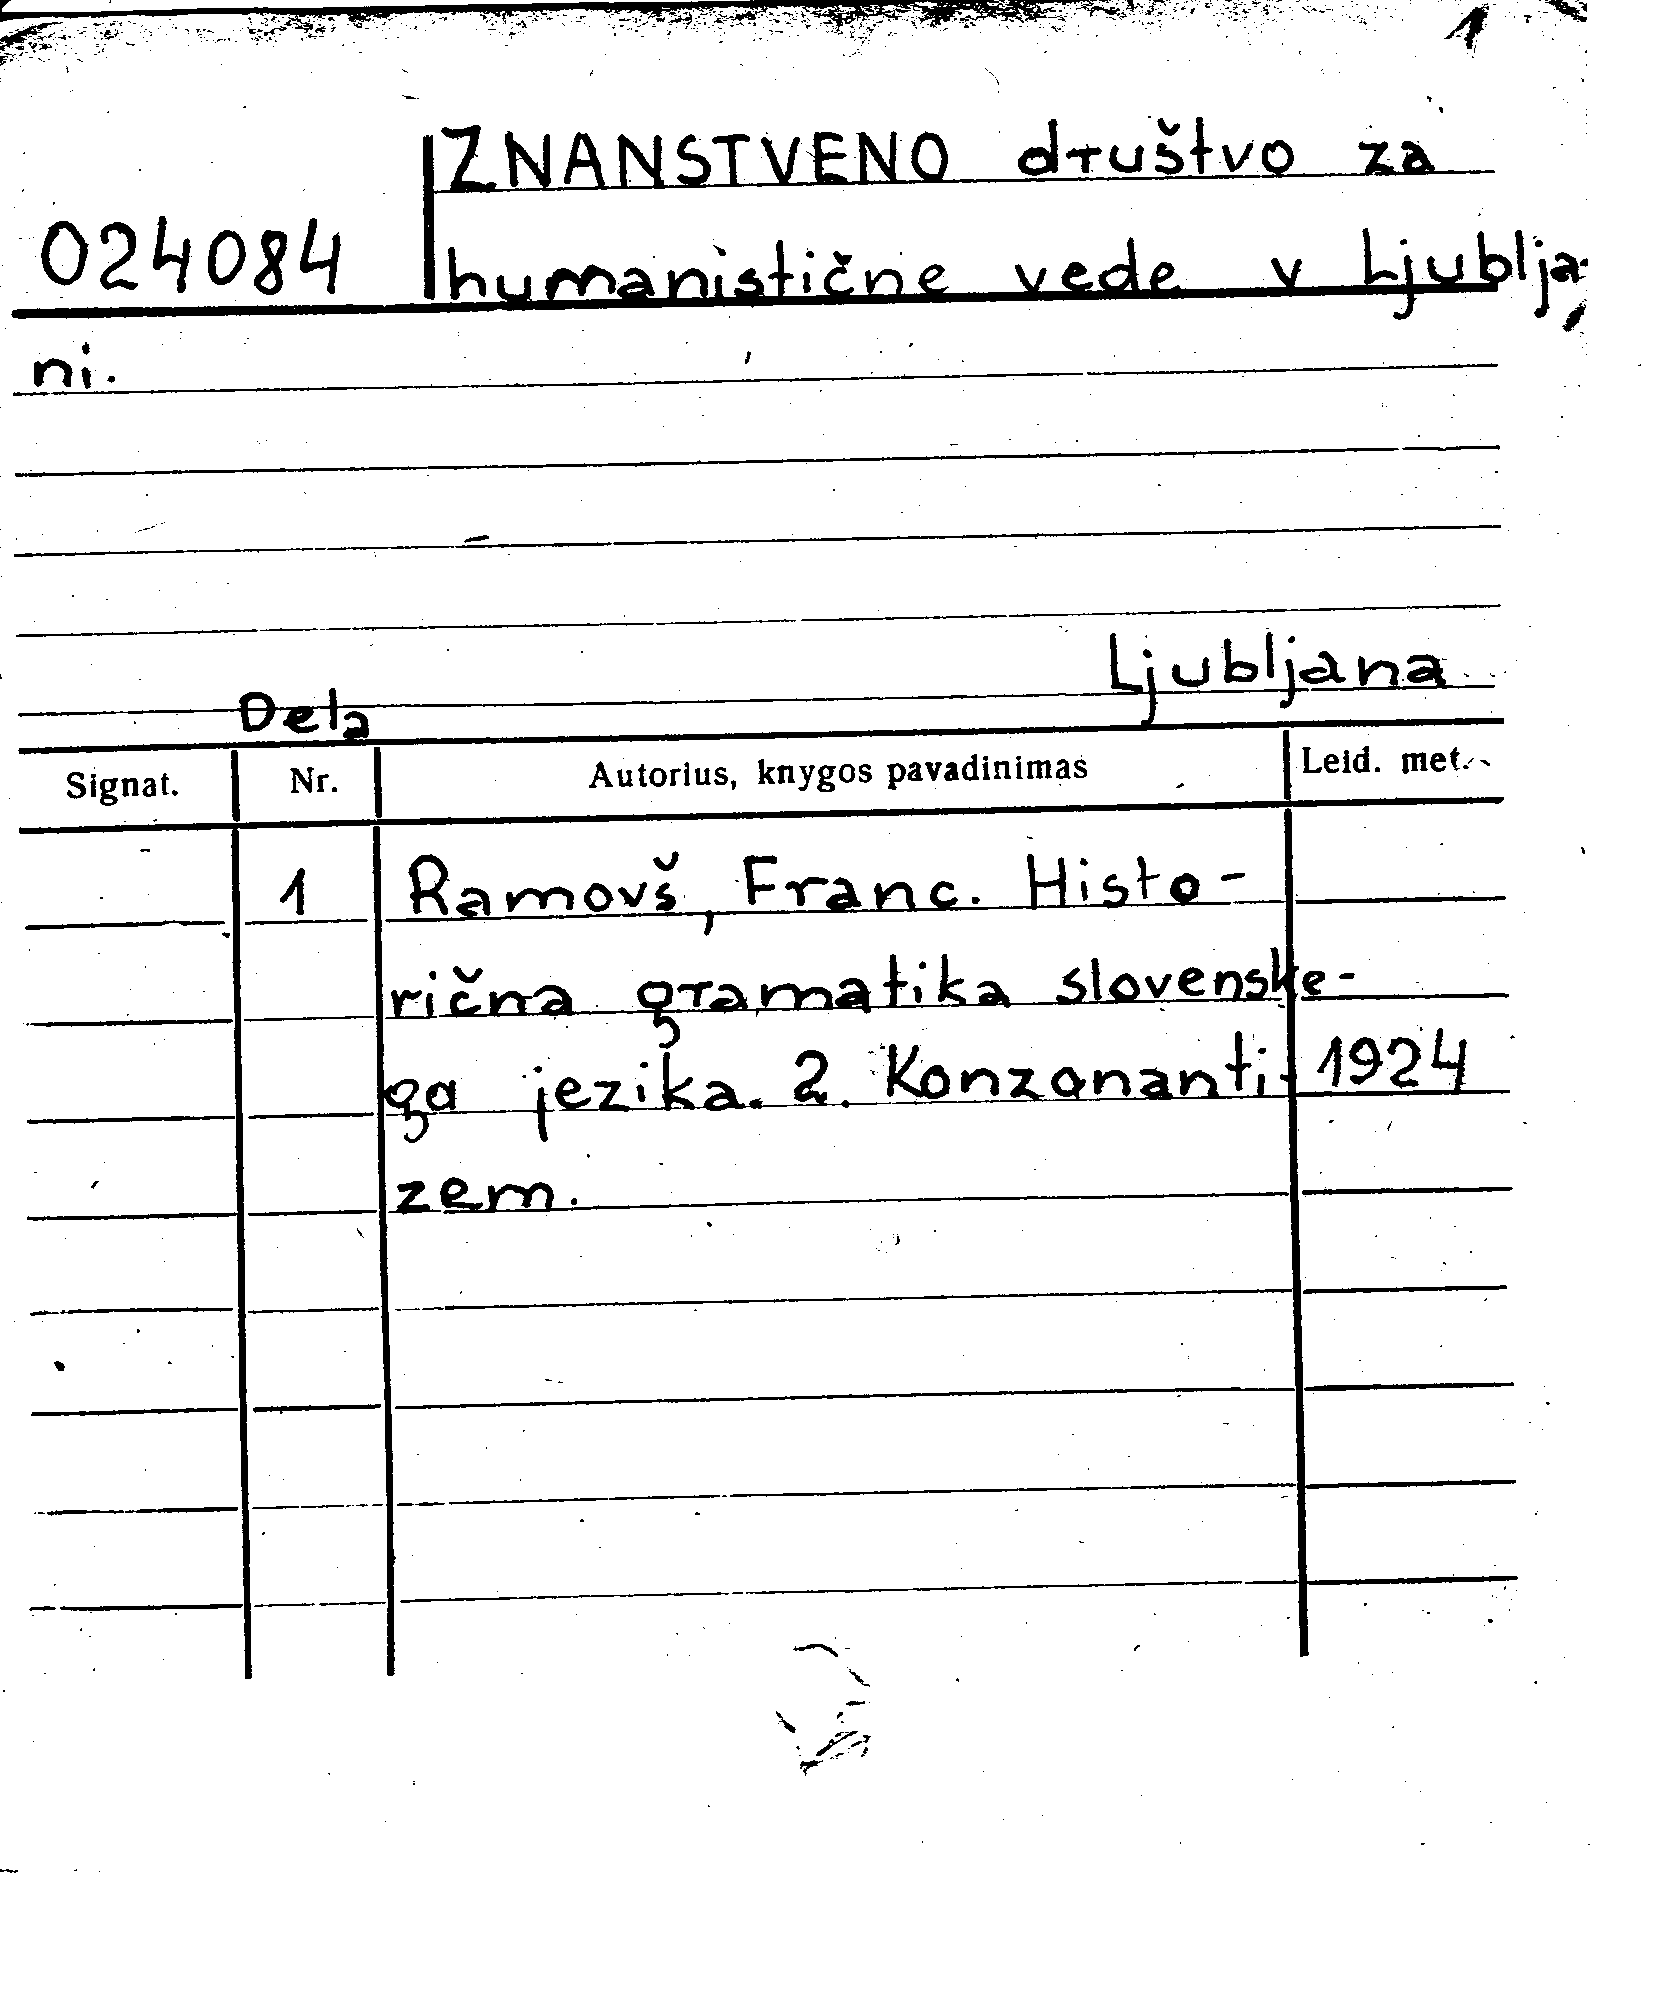 1
ZNANSTVENO društvo za
024084 humanistične vede v Ljublja-
ni.
Ljubljana
Dela
Signat. Nr. Autorius, knygos pavadinimas Leid. met.
1 Ramovš, Franc. Histo-
rična gramatika slovenske-
ga jezika. 2. Konzonanti- 1924
zem.